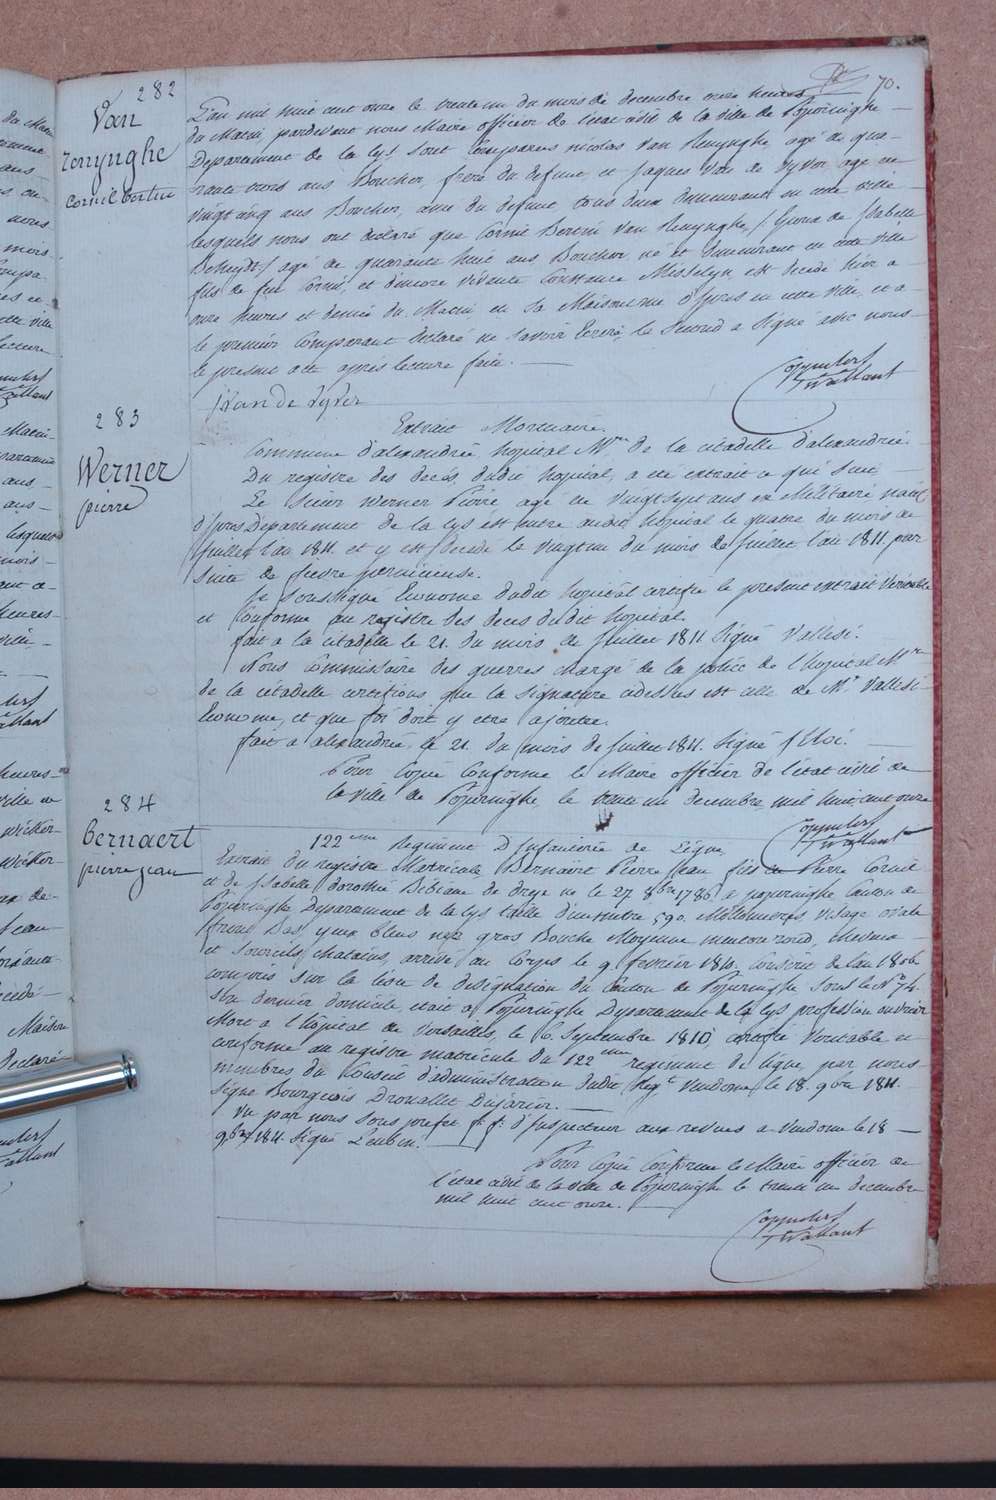 70.
282
Van
Renynghe
Cornil Bertin
L'an mil huit cent onze le trente un du mois de decembre onze heures
du Matin, pardevant nous Maire officier de l'etat civil de la ville de Poperinghe
Departement de la Lys, sont Comparus nicolas Van Renynghe, agé de qua-
rante trois ans Boucher, frere du defunt, et Jaques Van de Vyver agé de
vingt cinq ans Boucher, ami du defunt tous deux demeurants en cette ville
lesquels nous ont declaré que Cornil Bertin Van Renynghe, / Epoux de Isabelle
/ agé de quarante huit ans Boucher né et demeurant en cette ville
fils de feu Cornil, et d'encore vivante Constance est decedé hier a
onze heures et demie du Matin en sa Maison rue d'Ypres en cette ville, et a
le premier Comparant declaré ne savoir Ecrire, le second a signé avec nous
le present acte après lecture faite.
J Van de Vyver
283
Werner
pierre
Extrait Mortuaire.
Commune d'alexandrie hopital Mre de la citadelle d'alexandrie.
Du registre des decés dudit hopital, a été extrait ce qui suit
Le Sieur Werner Pierre, agé de vingt sept ans ex Militaire natif
d'ypres Departement de la Lys est entré audit hopital le quatre du mois de
Juillet l'an 1811. et y est decedé le vingt un du mois de Juillet l'an 1811. par
suite de fievre pernicieuse.
Je soussigné Econome dudit hopital certifie le present extrait veritable
et Conforme au registre des deces dudit hopital.
fait a la citadelle le 21. du mois de Juillet 1811 Signé Vallesi.
Nous Commissaire des guerres chargé de la police de l'hopital Mre
de la citadelle certifions que la signature cidessus est celle de Mr Vallesi
Econome, et que foi doit y etre ajoutée.
fait a alexandrie, le 21. du mois de Juillet 1811. Signé
Pour Copie Conforme le Maire officier de l'état civil de
la ville de Poperinghe, le trente un decembre mil huit cent onze
284
Bernaert
pierre jean
122eme Regiment D'Infanterie de Ligne,
Extrait du registre Matricule Bernaert Pierre Jean, fils de Pierre Cornil
et de Isabelle dorothé né le 27. 8bre 1786. a poperinghe Canton de
Poperinghe Departement de la Lys taille d'un metre 590. Millimetres visage ovale
front bas, yeux bleus nez gros Bouche Moyenne menton rond, cheveux
et sourcils chatains, arrivé au Corps le 9. fevrier 1810. Conscrit de l'an 1806.
compris sur la liste de désignation du Canton de Poperinghe sous le N° 74.
son dernier domicile, etait a Poperinghe Departement de la Lys profession ouvrier
Mort a l'hôpital de Versailles, le 6. Septembre 1810, certifié veritable et
conforme au registre matricule du 122eme regiment de ligne, par nous
membres du Conseil d'administration dudit Regt Vendome, le 18. 9bre 1811.
Signé Bourgeois Drouallet Dujarier.
Vu par nous sous prefet f. f. d'Inspecteur aux revues a Vendome le 18
9bre 1811 Signé
Pour Copie Conforme le Maire officier de
l'etat civil de la ville de Poperinghe le trente un decembre
mil huit cent onze.